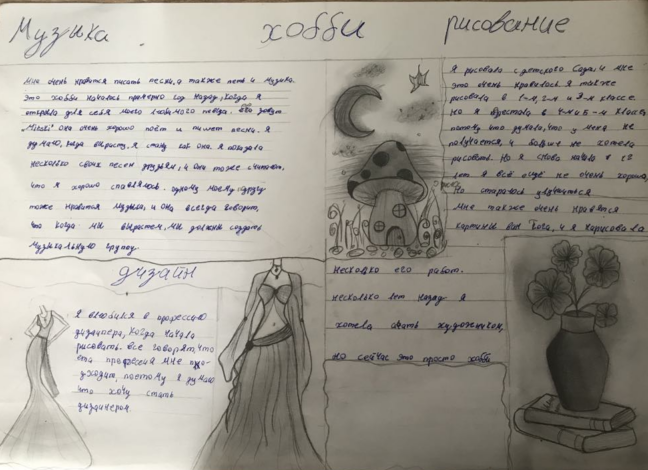 Музыка
хобби
рисование
Мне очень нравится писать песни, а также петь и музыка.
Это хобби началось примерно год назад, когда я
открыла для себя моего любимого певца. Его зовут
она очень хорошо поёт и пишет песни. Я
думаю, когда вырасту, я стану как она. Я показала
несколько своих песен друзьям, и они тоже считают,
что я хорошо справляюсь. одному моему другу
тоже нравится музыка, и она всегда говорит,
что когда мы вырастем, мы должны создать
музыкальную группу
Я рисовала с детского сада, и мне
это очень нравилось я также
рисовала в 1-м, 2-м и 3-м классе.
но я в 4-м и 5-м классе
потому что думала, что у меня не
получается, и больше не хотела
рисовать. Но я снова начала в
лет я всё ещё не очень хороша,
Но стараюсь улучшиться
Мне также очень нравятся
картины Ван Гога, и я нарисовала
несколько его работ.
несколько лет назад я
хотела стать художником,
но сейчас это просто хобби
дизайн
Я влюбился в профессию
дизайнера, когда начала
рисовать. Все говорят, что
эта профессия мне по-
дходит, поэтому я думаю
что хочу стать
дизайнером.